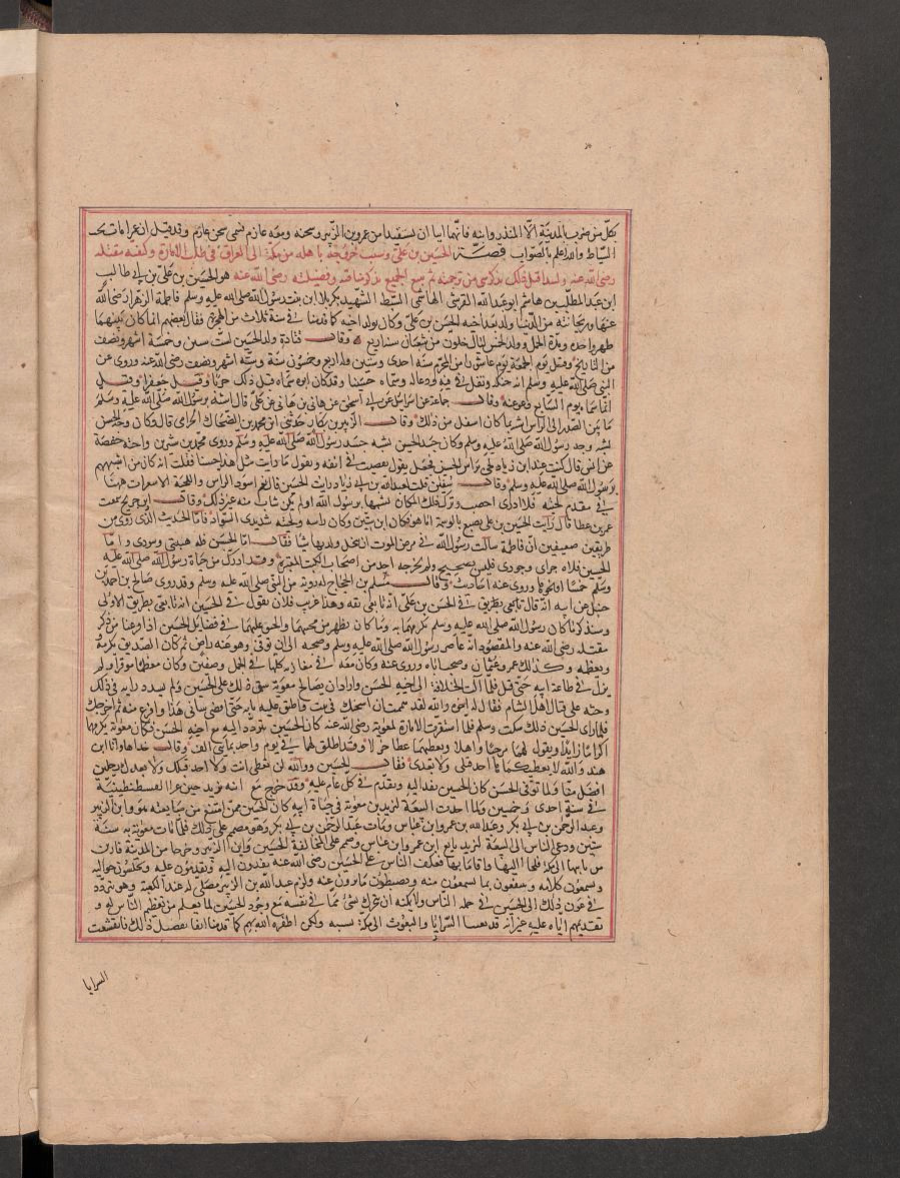 كل من ضرب بالمدينة الا المنذر وابنه فانهما ابيا ان يستقيدا من عمرو بن الزبير وسجنه ومعه عازم فسمى سجن عازم وقد قيل ان عمرا مات تحت
السياط والله اعلم بالصواب قصة الحسين بن علي وسبب خروجه باهله من مكة الى العراق في طلب الامارة وكيفية مقتله
رضي الله عنه ولنبدا قبل ذلك بذكر شيء من ترجمته ثم نتبع الجميع بذكر مناقبه وفضائله رضي الله عنه هو الحسين بن علي بن ابي طالب
ابن عبد المطلب بن هاشم ابو عبد الله القرشي الهاشمي السبط الشهيد بكربلا ابن بنت رسول الله صلى الله عليه وسلم فاطمة الزهرا رضي الله
عنها وريحانته من الدنيا ولد بعد اخيه الحسن بن علي وكان مولد اخيه كما قدمنا في سنة ثلاث من الهجرة فقال بعضهم انما كان بينهما
طهر واحد ومدة الحمل وولد لخمس ليال خلون من شعبان سنة اربع وقال قتادة ولد الحسين لست سنين وخمسة اشهر ونصف
من التاريخ وقتل يوم الجمعة يوم عاشورا من المحرم سنة احدى وستين وله اربع وخمسون سنة وستة اشهر ونصف رضي الله عنه وروي عن
النبي صلى الله عليه وسلم انه حنكه وتفل في فيه ودعا له وسماه حسينا وقد كان ابوه سماه قبل ذلك حربا وقيل جعفرا وقيل
انما سماه يوم السابع وعق عنه وقال جماعة عن اسرائيل عن ابي اسحق عن هاني بن هاني عن علي قال اشبه برسول الله صلى الله عليه وسلم
ما بين الصدر الى الراس اشبه ما كان اسفل من ذلك وقال الزبير بن بكار حدثني محمد بن الضحاك الحزامي قال كان وجه الحسن
يشبه وجه رسول الله صلى الله عليه وسلم وكان جسد الحسين يشبه جسد رسول الله صلى الله عليه وسلم وروى محمد بن سيرين واخته حفصة
عن انس قال كنت عند ابن زياد فجيء براس الحسين فجعل يقول بقضيب في انفه ويقول ما رايت مثل هذا حسنا فقلت انه كان من اشبههم
برسول الله صلى الله عليه وسلم وقال سفين قلت لعبيد الله بن ابي زياد رايت الحسين قال نعم اسود الراس واللحية الا شعرات ههنا
في مقدم لحيته فلا ادري اخضب وترك ذلك المكان تشبها برسول الله او لم يكن شاب منه غير ذلك وقال ابن جريج سمعت
عمر بن عطا قال رايت الحسين بن علي يصبغ بالوسمة اما هو فكان ابن ستين وكان راسه ولحيته شديدي السواد فاما الحديث الذي روي من
طريقين ضعيفين ان فاطمة سالت رسول الله في مرض الموت ان ينحل ولديها شيا فقال اما الحسن فله هيبتي وسوددي واما
الحسين فله جراي وجودي فليس بصحيح ولم يخرجه احد من اصحاب الكتب المعتبرة وقد ادرك من حياة رسول الله صلى الله عليه
وسلم خمس سنين او نحوها وروى عنه احاديث وقال مسلم بن الحجاج له روية من النبي صلى الله عليه وسلم وقد روى صالح بن احمد بن
حنبل عن ابيه انه قال في الحسن بن علي انه تابعي ثقة وهذا غريب فلان يقول في الحسين انه تابعي بطريق الاولى
وسنذكر ما كان رسول الله صلى الله عليه وسلم يكرمهما به وما كان يظهر من محبتهما والحنو عليهما في فضائل الحسين اذا فرغنا من ذكر
مقتله رضي الله عنه والمقصود انه عاصر رسول الله صلى الله عليه وسلم وصحبه الى ان توفي وهو عنه راض ثم كان الصديق يكرمه
ويعظمه وكذلك عمر وعثمان وصحب اباه وروى عنه وكان معه في مغازيه كلها في الجمل وصفين وكان معظما موقرا ولم
يزل في طاعة ابيه حتى قتل فلما الت الخلافة الى اخيه الحسن واراد ان يصالح معوية شق ذلك على الحسين ولم يسدد رايه في ذلك
وحثه على قتال اهل الشام فقال له اخوه والله لقد هممت ان اسجنك في بيت واطبق عليك بابه حتى اقضي شاني هذا وافرغ منه ثم اخرجك
فلما راى الحسين ذلك سكت وسلم فلما استقرت الامارة لمعوية رضي الله عنه كان الحسين يتردد اليه مع اخيه الحسن فكان معوية يكرمهما
اكراما زايدا ويقول لهما مرحبا واهلا ويعطيهما عطا جزيلا وقد اطلق لهما في يوم واحد بمايتي الف وقال خذاها وانا ابن
هند والله لا يعطيكماها احد قبلي ولا بعدي فقال الحسين والله لن تعطي انت ولا احد قبلك ولا بعدك رجلين
افضل منا ولما توفي الحسن كان الحسين يفد اليه ويقدم في كل عام عليه وقد خرج مع ابنه يزيد حين غزا القسطنطينية
في سنة احدى وخمسين ولما اخذت البيعة ليزيد بن معوية في حياة ابيه كان الحسين ممن امتنع من مبايعته هو وابن الزبير
وعبد الرحمن بن ابي بكر وعبد الله بن عمر وابن عباس ومات عبد الرحمن بن ابي بكر وهو مصمم على ذلك فلما مات معوية سنة
ستين ودعي الناس الى البيعة ليزيد بايع ابن عمر وابن عباس وصمم على المخالفة الحسين وابن الزبير وخرجا من المدينة فارين
الى مكة فلجا اليها واقاما بها فعكف الناس على الحسين رضي الله عنه يفدون اليه ويقدمون عليه ويجلسون حواليه
ويسمعون كلامه وينتفعون بما يسمعون منه ويضبطون ما يروون عنه ولزم عبد الله بن الزبير مصلى له عند الكعبة وهو يتردد
في غضون ذلك الى الحسين في جملة الناس ولا يمكنه ان يتحرك بشيء مما في نفسه مع وجود الحسين لما يعلم من تعظيم الناس له و
تقديمهم اياه عليه غير انه قد بعثت السرايا والبعوث الى مكة بسببه ولكن اظفره الله بهم كما قدمنا انفا تفصيل ذلك فانقشعت
السرايا